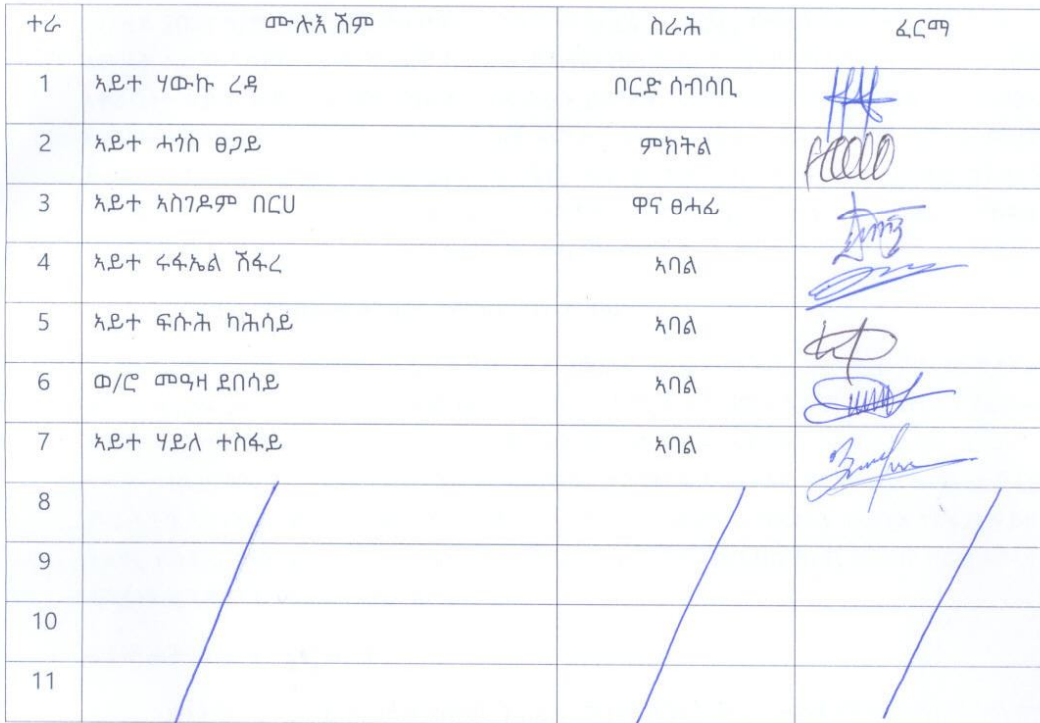 ተራ ሙሉእ ሽም ስራሕ ፈርማ
1 ኣይተ ሃውኩ ረዳ ቦርድ ሰብሳቢ
2 ኣይተ ሓጎስ ፀጋይ ምክትል
3 ኣይተ ኣስገዶም በርሀ ዋና ፀሓፊ
4 ኣይተ ሩፋኤል ሽፋረ ኣባል
5 ኣይተ ፍሱሕ ካሕሳይ ኣባል
6 ወ/ሮ መዓዛ ደበሳይ ኣባል
7 ኣይተ ሃይለ ተስፋይ ኣባል
8
9
10
11